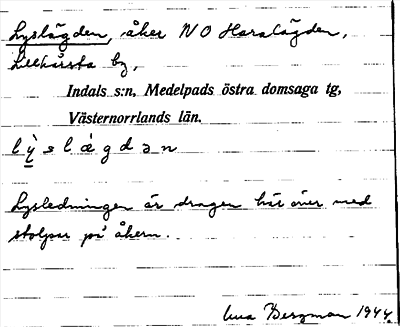 Lyslägden, åker NO Haralägden,
Lillhårsta by,
Indals s:n, Medelpads östra domsaga tg,
Västernorrlands län.
lỳslǽgdən
Lysledningen är dragen här över med
stolpar på åkern.
Bergman 1944